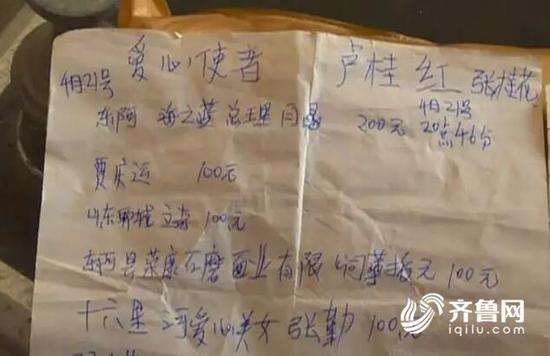 爱心使者 卢桂红 张桂花
4月21号
东阿 海之蓝总经理闫 200元 4月21号
20点46分
贾庆运 100元
山东聊城 文 100元
东阿县荣康石磨面业有限公司 元 100元
十六里河爱心美女 张勤 100元
齐鲁网
iqilu.com